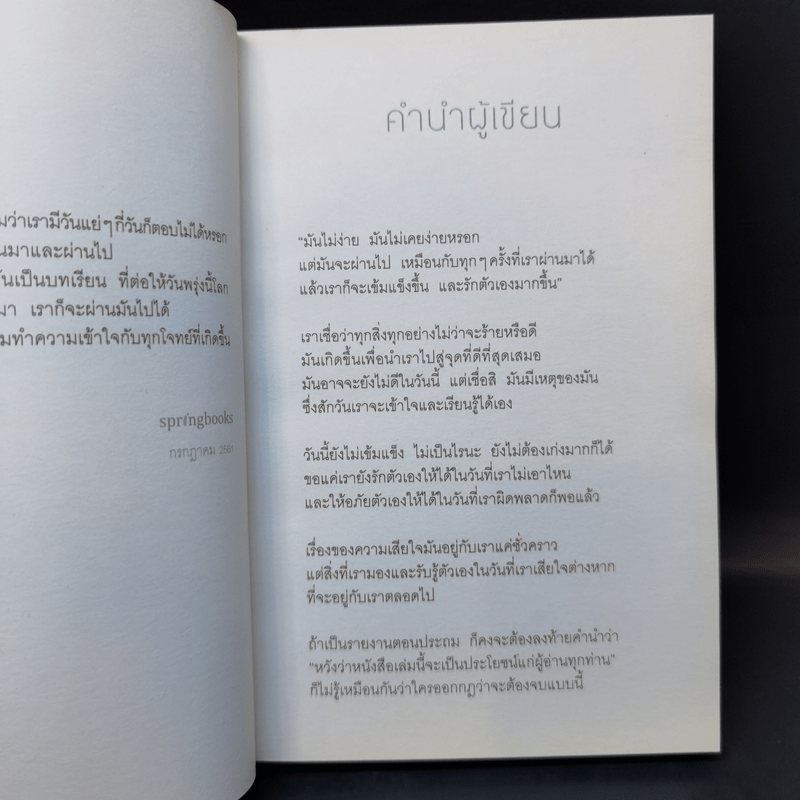 ว่าเรามีวันแย่ๆ กี่วันก็ตอบไม่ได้หรอก
มาและผ่านไป
เป็นบทเรียน ที่ต่อให้วันพรุ่งนี้โลก
มา เราก็จะผ่านมันไปได้
ทำความเข้าใจกับทุกโจทย์ที่เกิดขึ้น
springbooks
กรกฎาคม 2561
คำนำผู้เขียน
"มันไม่ง่าย มันไม่เคยง่ายหรอก
แต่มันจะผ่านไป เหมือนกับทุกๆ ครั้งที่เราผ่านมาได้
แล้วเราก็จะเข้มแข็งขึ้น และรักตัวเองมากขึ้น"
เราเชื่อว่าทุกสิ่งทุกอย่างไม่ว่าจะร้ายหรือดี
มันเกิดขึ้นเพื่อนำเราไปสู่จุดที่ดีที่สุดเสมอ
มันอาจจะยังไม่ดีในวันนี้ แต่เชื่อสิ มันมีเหตุของมัน
ซึ่งสักวันเราจะเข้าใจและเรียนรู้ได้เอง
วันนี้ยังไม่เข้มแข็ง ไม่เป็นไรนะ ยังไม่ต้องเก่งมากก็ได้
ขอแค่เรายังรักตัวเองให้ได้ในวันที่เราไม่เอาไหน
และให้อภัยตัวเองให้ได้ในวันที่เราผิดพลาดก็พอแล้ว
เรื่องของความเสียใจมันอยู่กับเราแค่ชั่วคราว
แต่สิ่งที่เรามองและรับรู้ตัวเองในวันที่เราเสียใจต่างหาก
ที่จะอยู่กับเราตลอดไป
ถ้าเป็นรายงานตอนประถม ก็คงจะต้องลงท้ายคำนำว่า
"หวังว่าหนังสือเล่มนี้จะเป็นประโยชน์แก่ผู้อ่านทุกท่าน"
ก็ไม่รู้เหมือนกันว่าใครออกกฎว่าจะต้องจบแบบนี้